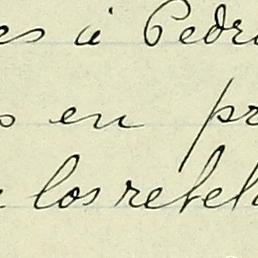 es á Pedro
s en pr
los rebel